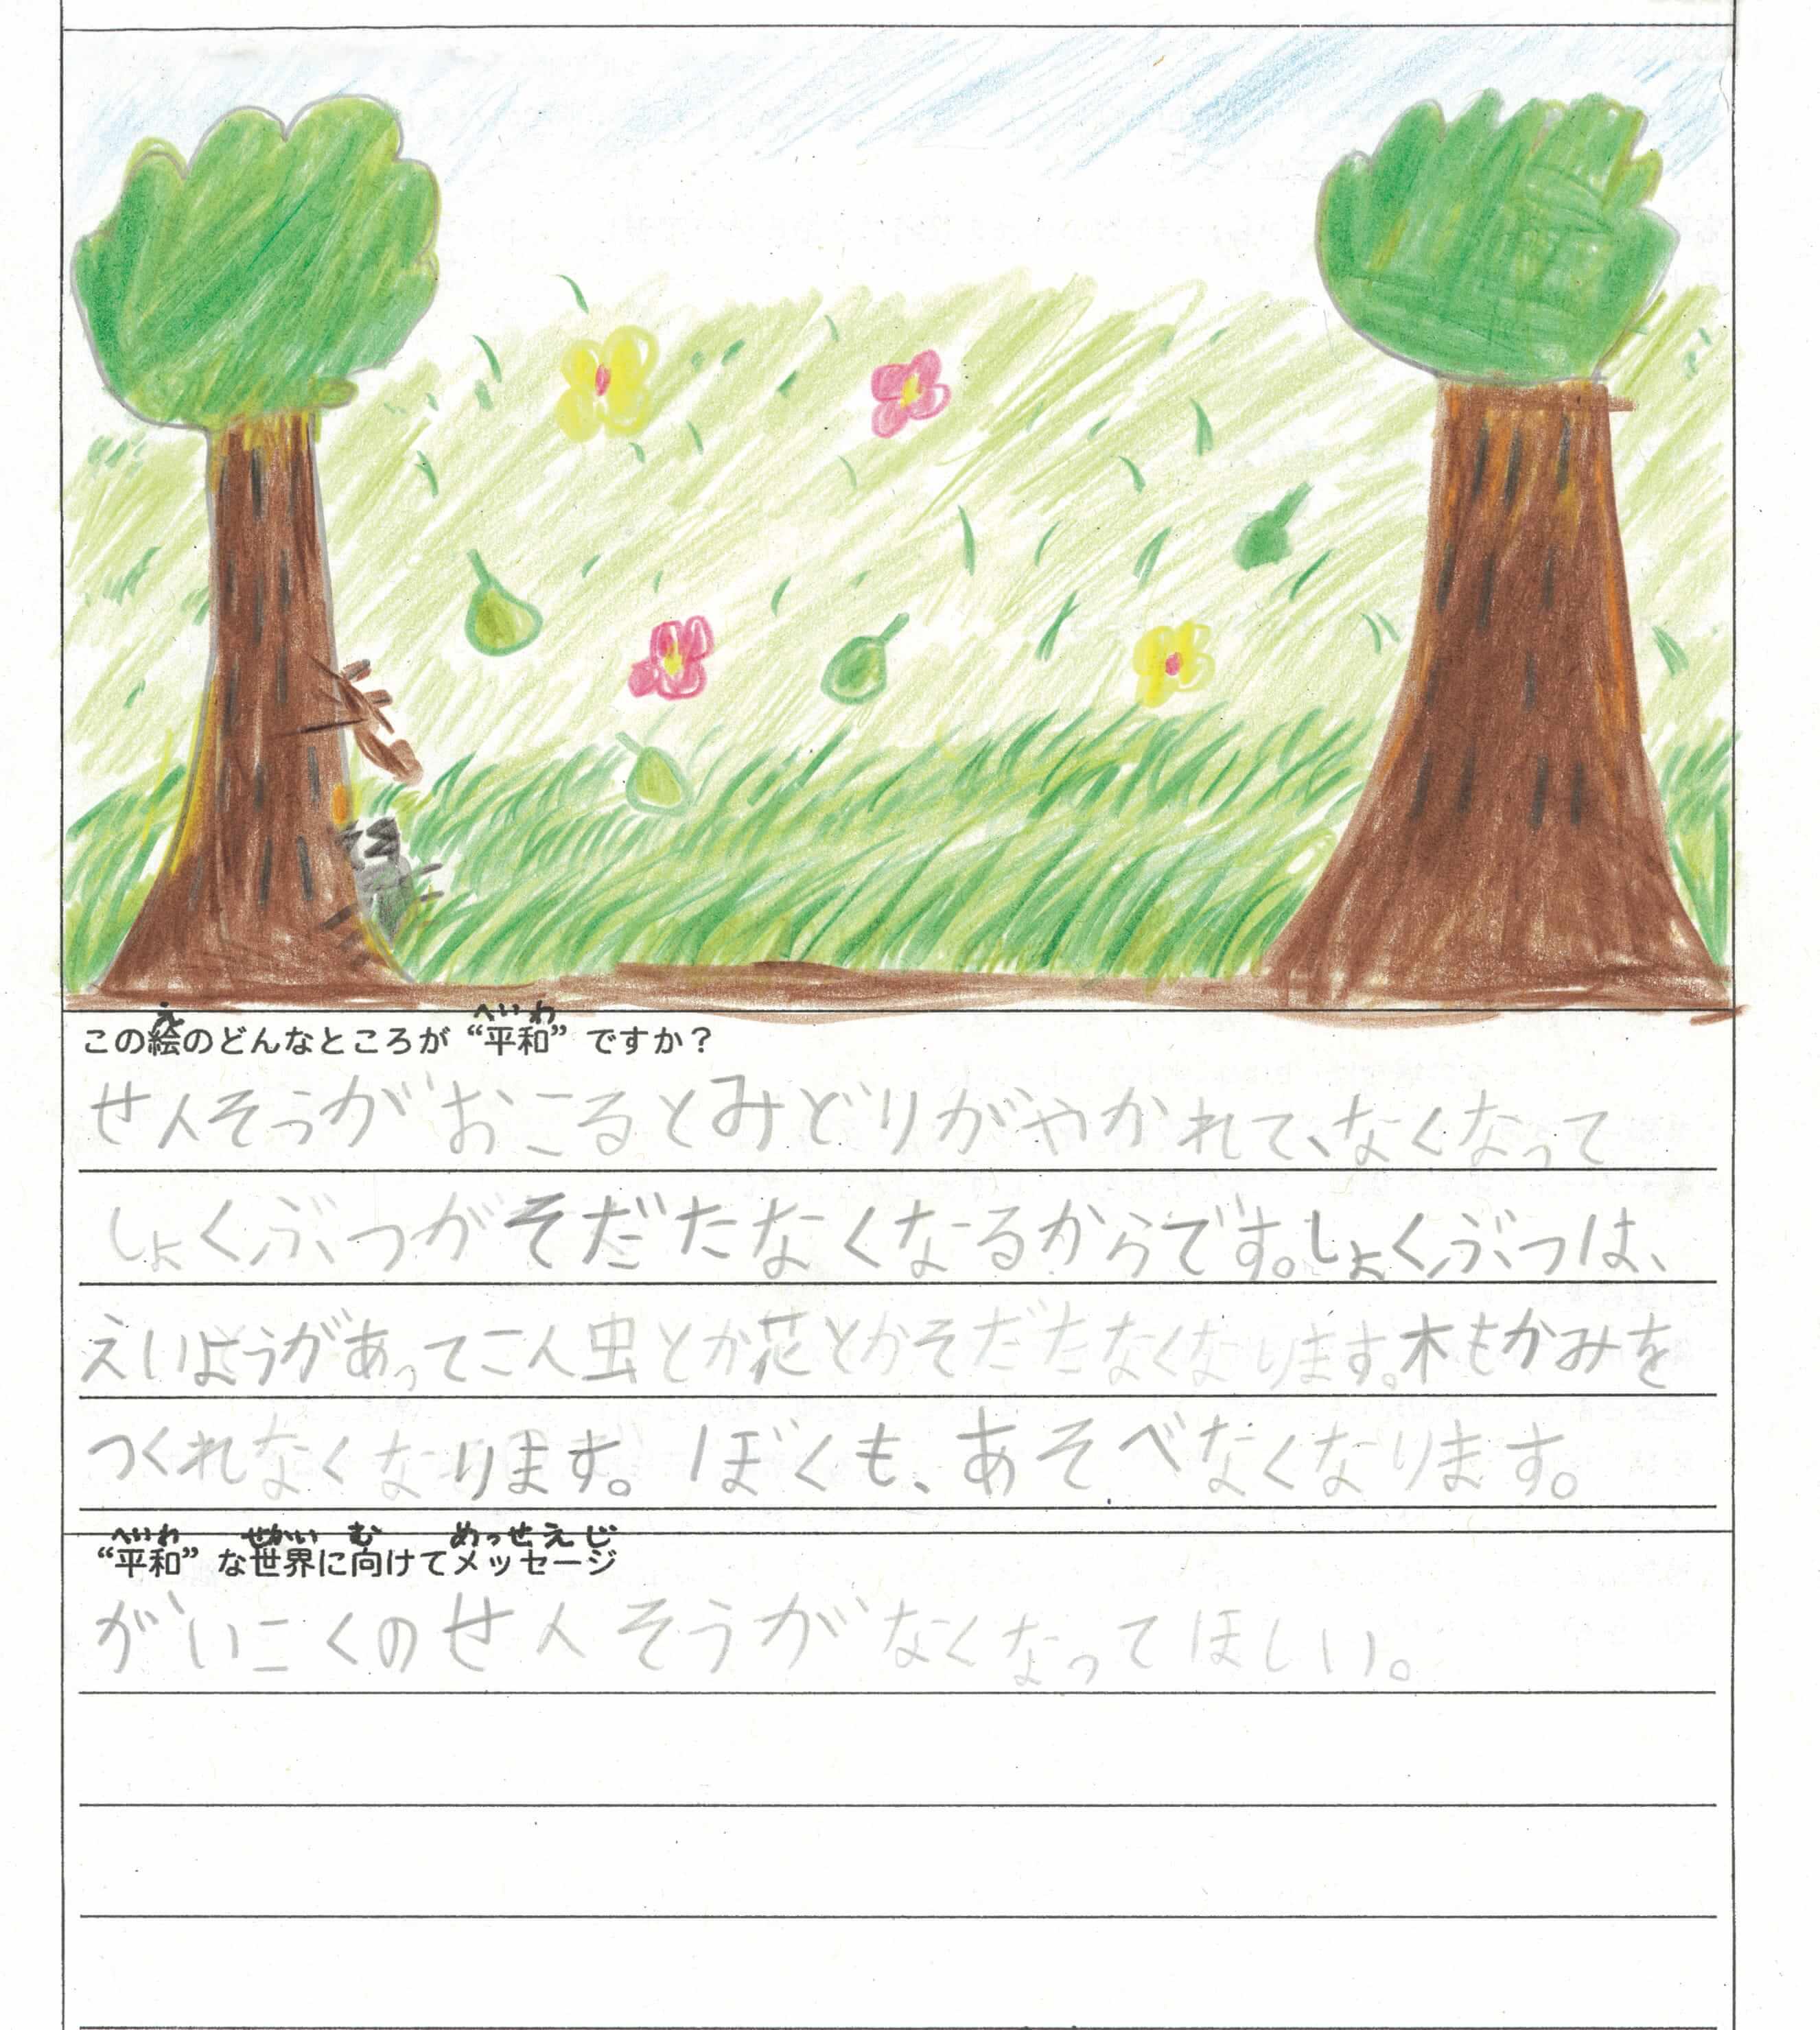 この絵のどんなところが“平和”ですか？
えへいわ
せんそうがおこるとみどりがやかれて、なくなって
しょくぶつがそだたなくなるからです。しょくぶつは、
えいようがあってこん虫とか花とかそだたなくなります。木もかみを
つくれなくなります。ぼくも、あそべなくなります。
へいわ せかい む めっせえじ
“平和”な世界に向けてメッセージ
がいこくのせんそうがなくなってほしい。